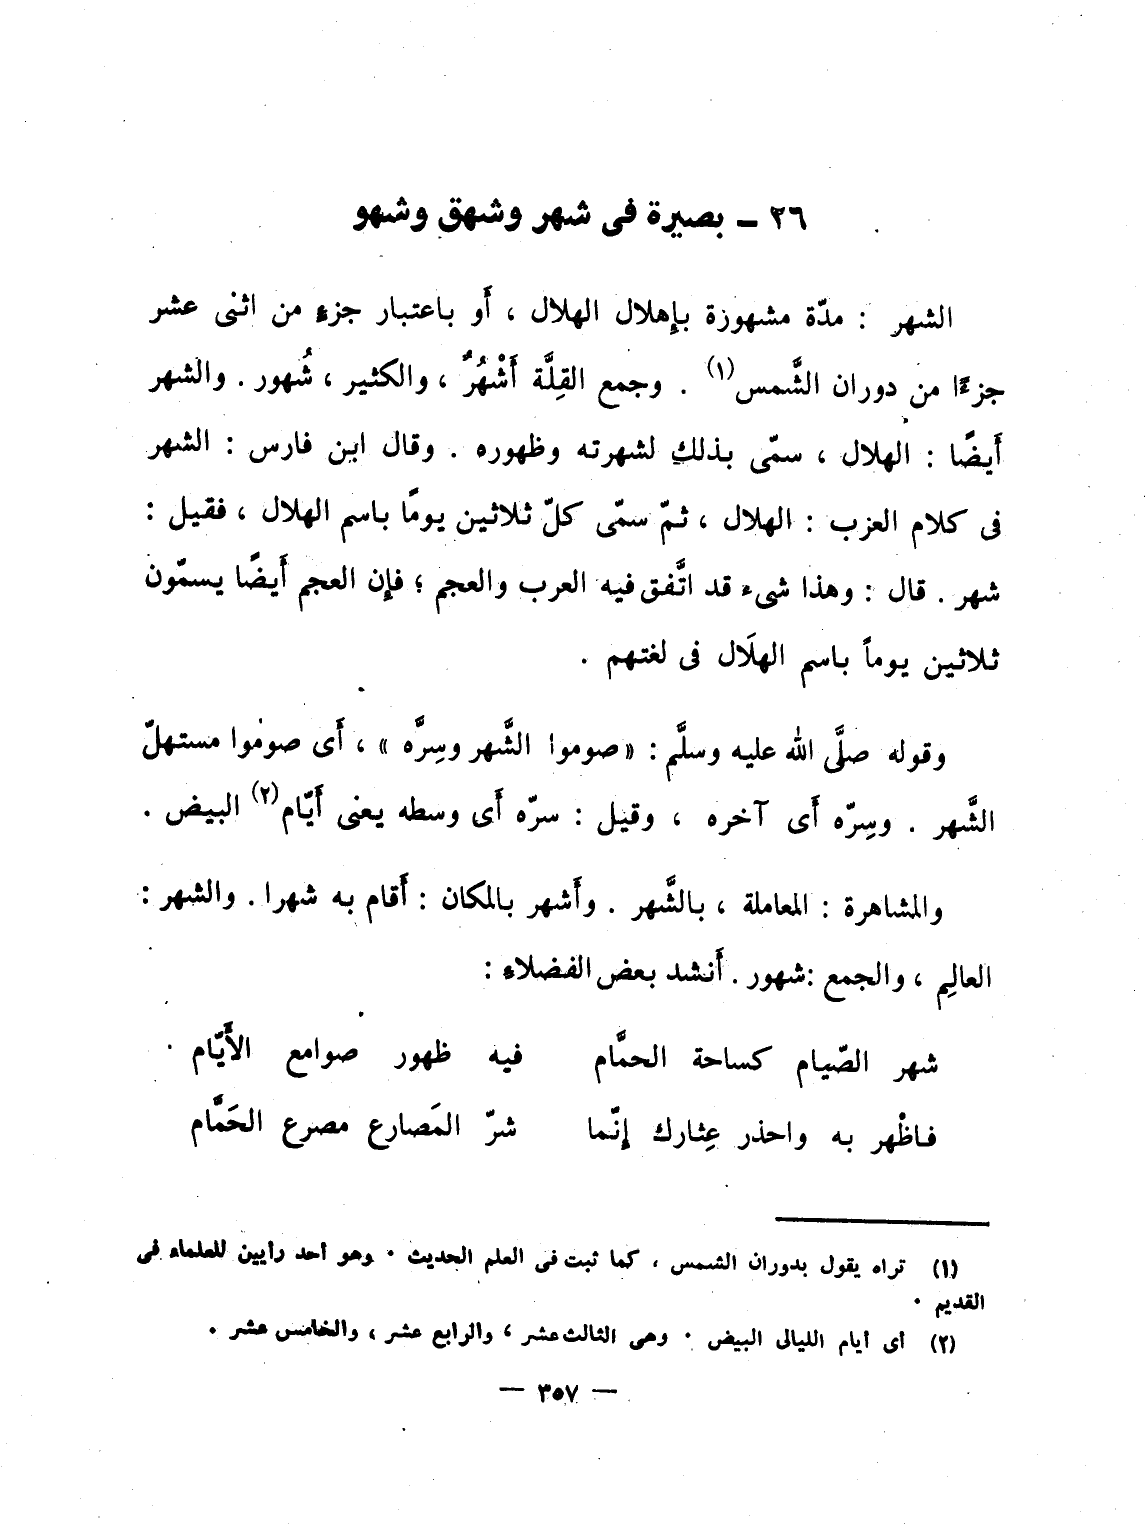 ٢٦ ــ بصيرة فى شهر وشهق وشهو
الشهر : مدّة مشهورة بإهلال الهلال ، أو باعتبار جزء من اثنى عشر
جزءًا من دوران الشَّمس(١) . وجمع القِلَّة أَشْهُرٌ ، والكثير ، شُهور . والشهر
أيضًا : الهلال ، سمّى بذلك لشهرته وظهوره . وقال ابن فارس : الشهر
فى كلام العرب : الهلال ، ثمّ سمّى كلّ ثلاثين يومًا باسم الهلال ، فقيل :
شهر . قال : وهذا شىء قد اتَّفق فيه العرب والعجم ؛ فإن العجم أيضًا يسمّون
ثلاثين يوماً باسم الهلَال فى لغتهم .
وقوله صلَّى الله عليه وسلَّم : « صوموا الشَّهر وسِرَّه » ، أى صوموا مستهلّ
الشَّهر . وسِرّه أى آخره ، وقيل : سرّه أى وسطه يعنى أيّام(٢) البيض .
والمشاهرة : المعاملة ، بالشَّهر . وأشهر بالمكان : أقام به شهرا . والشهر :
العالِم ، والجمع : شهور . أنشد بعض الفضلاء :
شهر الصّيام كساحة الحمَّام فيه ظهور صوامع الأَيّام
فاظْهر به واحذر عِثارك إنّما شرّ المَصارع مصرع الحَمَّام
(١) تراه يقول بدوران الشمس ، كما ثبت فى العلم الحديث . وهو أحد رأيين للعلماء فى
القديم .
(٢) أى أيام الليالى البيض . وهى الثالث عشر ، والرابع عشر ، والخامس عشر .
— ٣٥٧ —